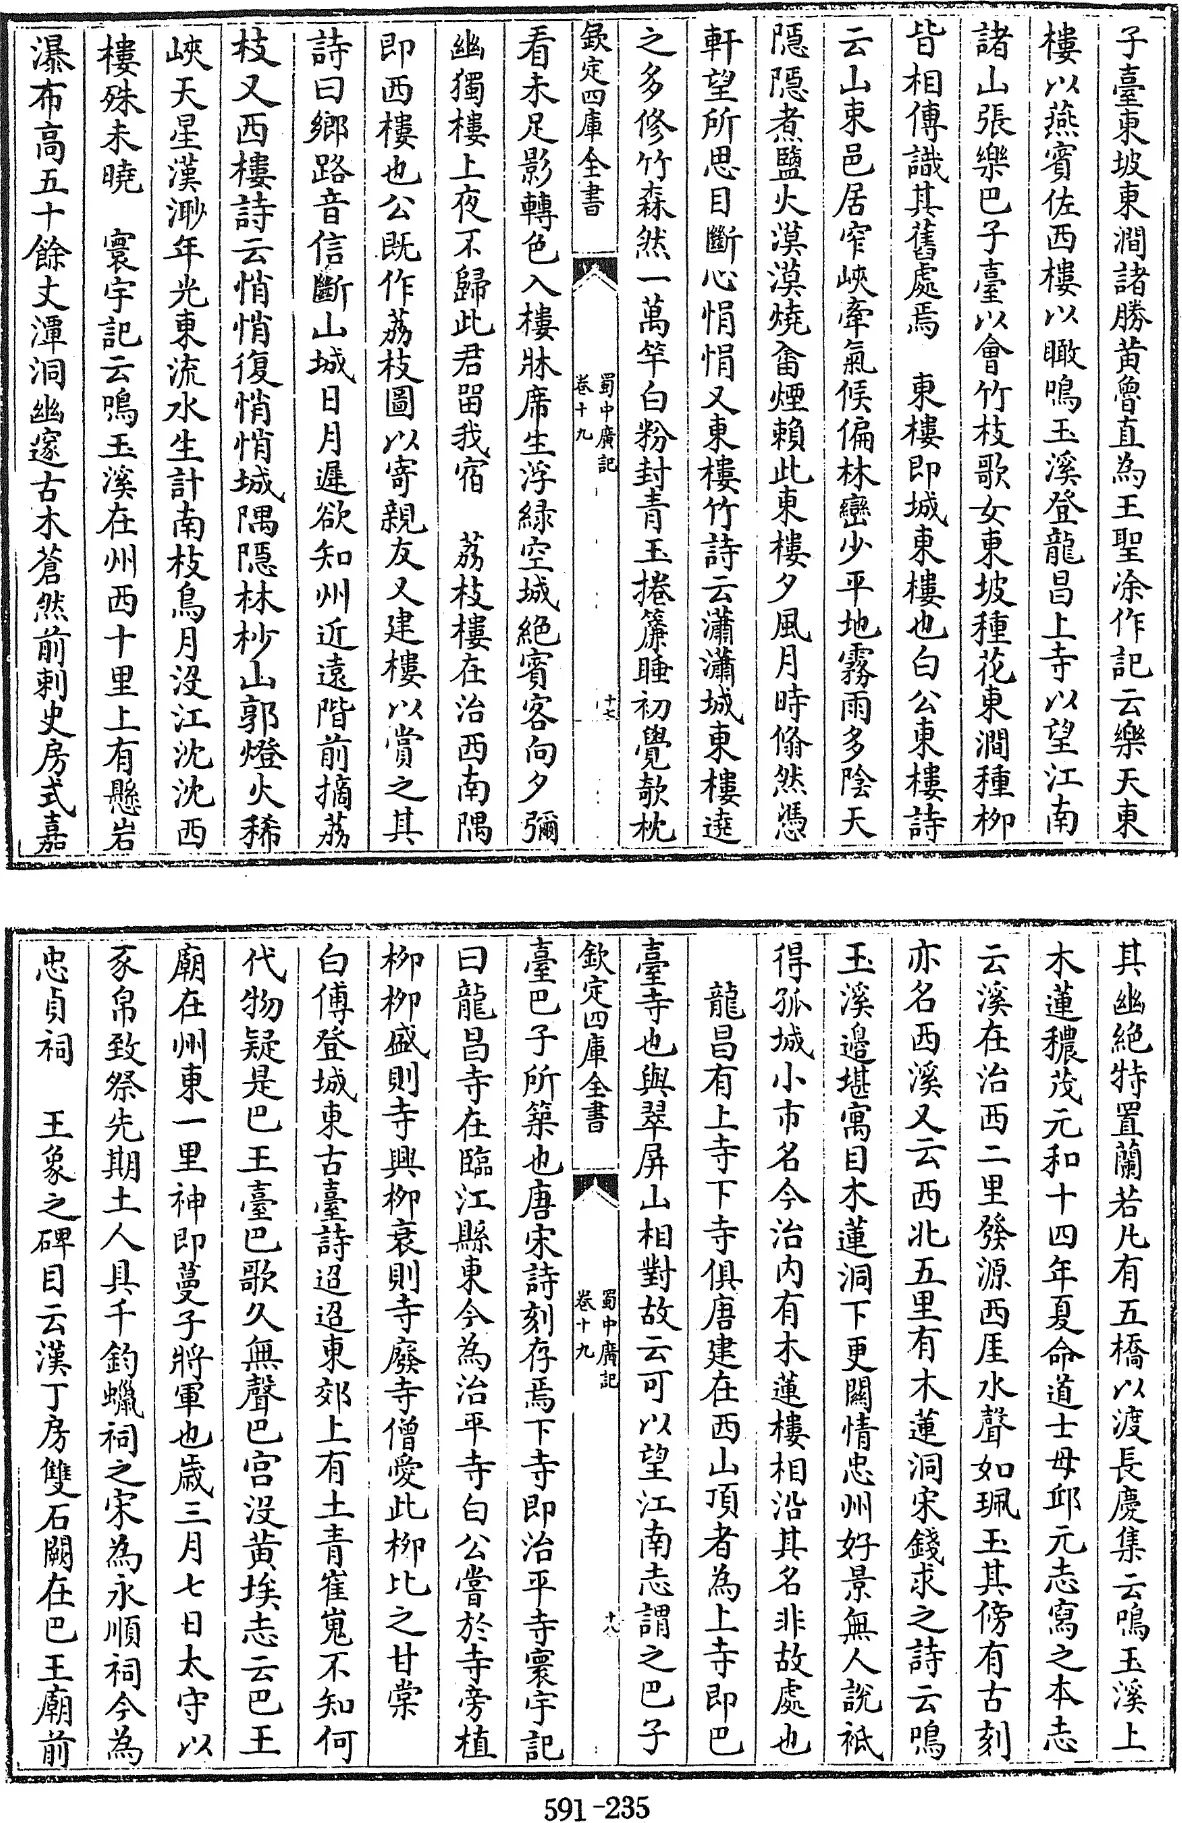 子臺東坡東澗諸勝黃魯直為王聖涂作記云樂天東
樓以燕賓佐西樓以瞰鳴玉溪登龍昌上寺以望江南
諸山張樂巴子臺以會竹枝歌女東坡種花東澗種柳
皆相傳識其舊處焉　東樓即城東樓也白公東樓詩
云山東邑居窄峽牽氣候偏林巒少平地霧雨多陰天
隱隱煮鹽火漠漠燒畬煙賴此東樓夕風月時翛然憑
軒望所思目斷心悁悁又東樓竹詩云瀟瀟城東樓遶
之多修竹森然一萬竿白粉封青玉捲簾睡初覺欹枕
欽定四庫全書
蜀中廣記
卷十九
十七
看未足影轉色入樓牀席生浮綠空城絕賓客向夕彌
幽獨樓上夜不歸此君留我宿　荔枝樓在治西南隅
即西樓也公既作荔枝圖以寄親友又建樓以賞之其
詩曰鄉路音信斷山城日月遲欲知州近遠階前摘荔
枝又西樓詩云悄悄復悄悄城隅隱林杪山郭燈火稀
峽天星漢渺年光東流水生計南枝鳥月沒江沈沈西
樓殊未曉　寰宇記云鳴玉溪在州西十里上有懸岩
瀑布高五十餘丈潭洞幽邃古木蒼然前刺史房式嘉
其幽絕特置蘭若凡有五橋以渡長慶集云鳴玉溪上
木蓮穠茂元和十四年夏命道士毋邱元志寫之本志
云溪在治西二里發源西厓水聲如珮玉其傍有古刻
亦名西溪又云西北五里有木蓮洞宋錢求之詩云鳴
玉溪邊堪寓目木蓮洞下更關情忠州好景無人說祗
得孤城小市名今治内有木蓮樓相沿其名非故處也
龍昌有上寺下寺俱唐建在西山頂者為上寺即巴
臺寺也與翠屏山相對故云可以望江南志謂之巴子
欽定四庫全書
蜀中廣記
卷十九
十八
臺巴子所築也唐宋詩刻存焉下寺即治平寺寰宇記
曰龍昌寺在臨江縣東今為治平寺白公嘗於寺旁植
柳柳盛則寺興柳衰則寺廢寺僧愛此柳比之甘棠
白傅登城東古臺詩迢迢東郊上有土青崔嵬不知何
代物疑是巴王臺巴歌久無聲巴宫沒黄埃志云巴王
廟在州東一里神即蔓子將軍也歲三月七日太守以
豕帛致祭先期土人具千鈞蠟祠之宋為永順祠今為
忠貞祠　王象之碑目云漢丁房雙石闕在巴王廟前
591-235